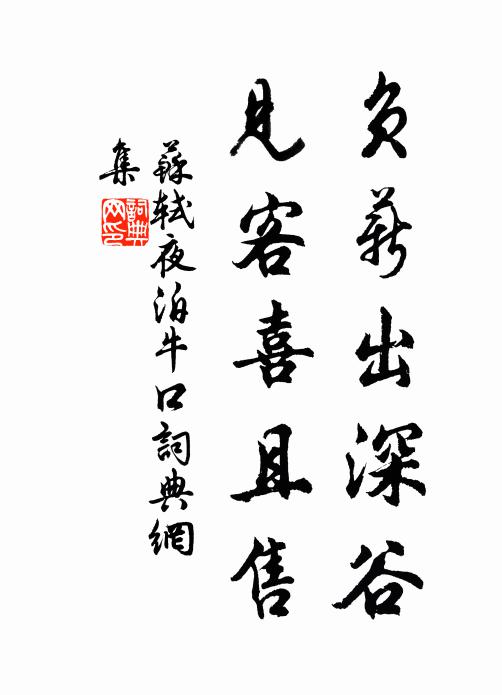 负薪出深谷
见客喜且售
蘇軾夜泊牛口詞典網
集
詞典
网印